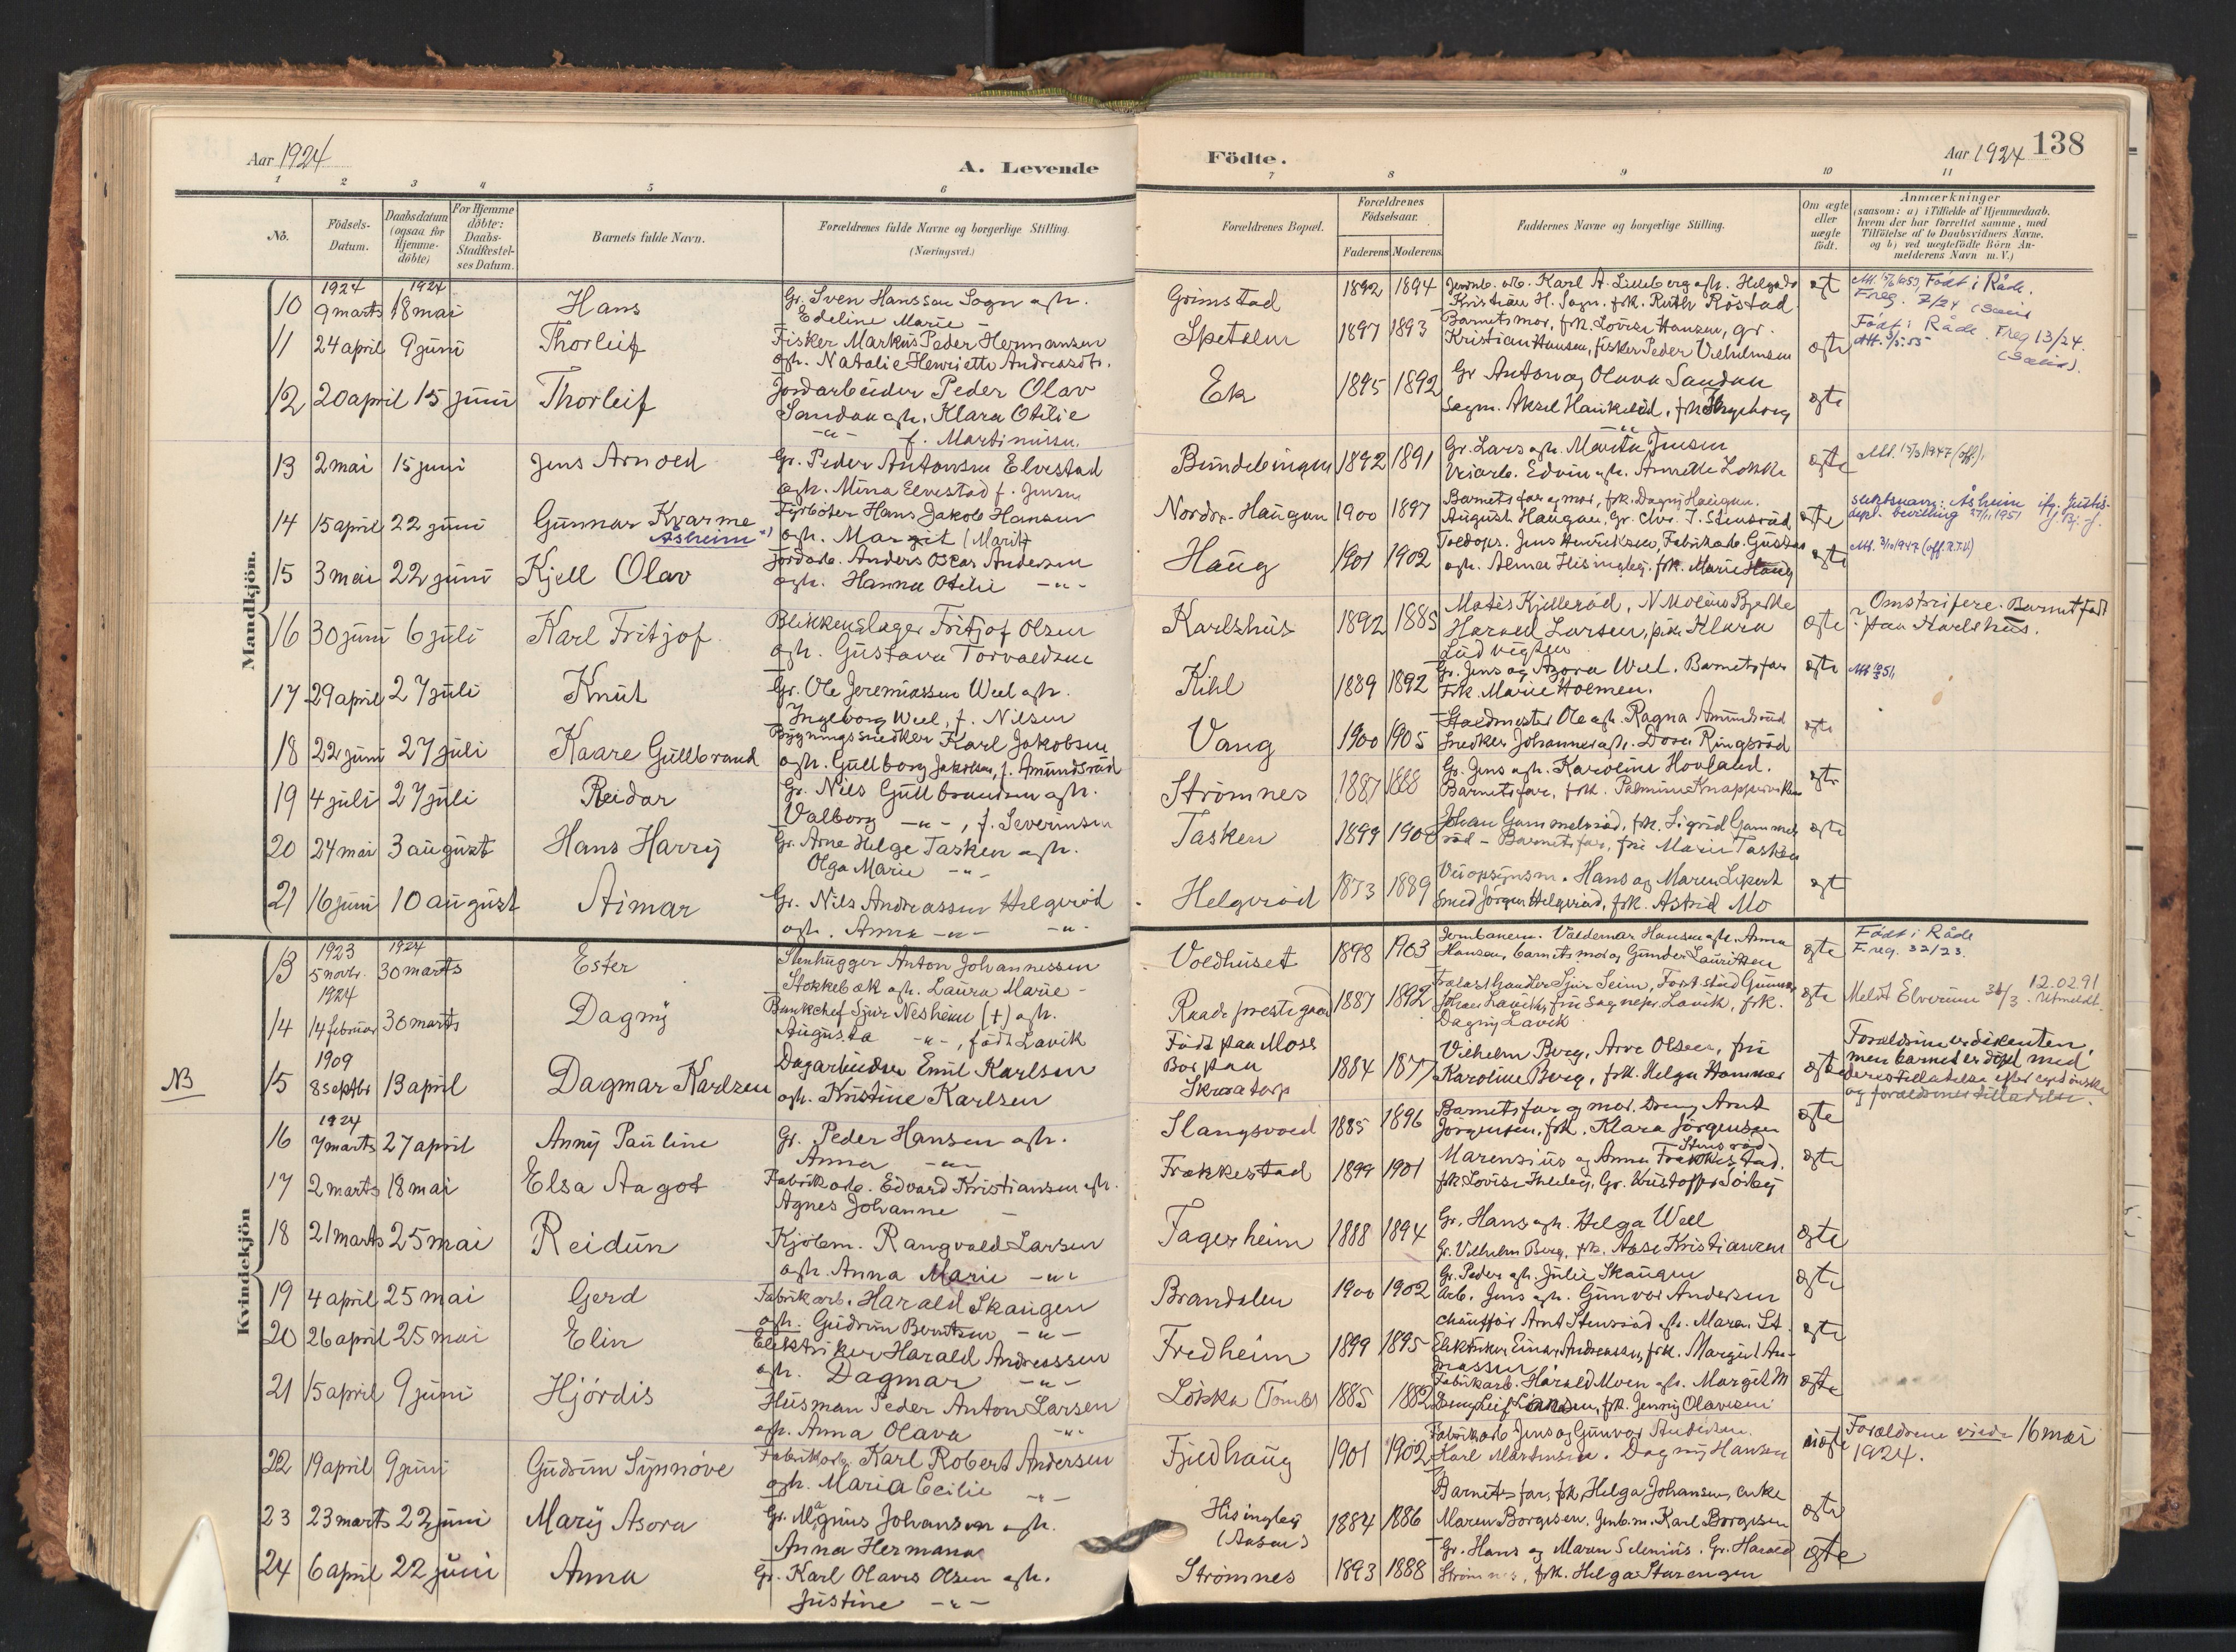 Aar 1924
A. Levende
Födte.
Aar 1924
138
1 2 3 4 5 6 7 8 9 10 11
No.
Födsels-Datum.
Daabsdatum (ogsaa for Hjemme-döbte)
For Hjemme döbte: Daabs-Stadfæstelses Datum.
Barnets fulde Navn.
Forældrenes fulde Navne og borgerlige Stilling. (Næringsvei.)
Forældrenes Bopæl.
Forældrenes Födselsaar.
Faderens Moderens
Faddernes Navne og borgerlige Stilling.
Om ægte eller uægte födt.
Anmærkninger
(saasom: a) i Tilfælde af Hjemmedaab, hvem der har forrettet samme, med Tilföielse af to Daabsvidners Navne, og b) ved uægtefödte Börn Anmelderens Navn m. V.)
Mandkjön.
1924 1924
10 9 marts 18 mai Hans
Gr. Sven Hansson Sogn og h.
Edeline Marie -
Grimstad 1892 1894
Kristian H. Sogn. frk. Ruth Röstad
Født i Råde.
Freg. 7/24
11 24 april 9 juni Thorleif
Fisker Markus Peder Hermansen
og h. Natalie Henriette Andreasdtr.
Spetalen 1897 1893
Barnets mor, frk. Lovise Hansen, gr.
Kristian Hansen, fisker Peder Vilhelmsen
ægte
Født i Råde. Freg 13/24.
12 20 april 15 juni Thorleif
Jordarbeider Peder Olav
Sandan og h. Klara Otilie
-"- f. Martinsen.
Ek 1895 1892
Gr Anton og Olava Sandan
ægte
13 2 mai 15 juni Jens Arnold
Gr. Peder Antonsen Elvestad
og h. Mina Elvestad f. Jensen
Bundebingen 1892 1891
Gr. Lars og h. Marita Jensen
Veiarb. Edvin og h. Annette Lökke
ægte
14 15 april 22 juni Gunnar Kvarme
Åsheim
Fyrböter Hans Jakob Hansen
og h. Margit (Marit)
Nordre Haugen 1900 1897
Barnets far og mor, frk. Dagny Haugen.
August Haugen, Gr. Chr. J. Stensröd
ægte
15 3 mai 22 juni Kjell Olav
Jordarb. Anders Oskar Andersen
og h. Hanna Otilie -"-
Haug 1901 1902
ægte
16 30 juni 6 juli Karl Fritjof
Blikkenslager Fritjof Olsen
og h. Gustava Torvaldsen
Karlshus 1892 1885
Harald Larsen, pike Klara
Ludvigsen
ægte
Omskrifere. Barnet født
paa Karlshus.
17 29 april 27 juli Knut
Gr. Ole Jeremiassen Weel og h.
Ingeborg Weel, f. Nilsen
Kihl 1889 1892
Gr. Jens og Azora Weel. Barnets far
Frk. Marie Holmen.
ægte
18 22 juni 27 juli Kaare Gullbrand
Bygningssnedker Karl Jakobsen
og h. Gullborg Jakobsen, f. Amundsröd
Vang 1900 1905
Staldmester Ole og h. Ragna Amundsröd
Snedker Johannes og h. Dora Ringsröd
ægte
19 4 juli 27 juli Reidar
Gr. Nils Gullbrandsen og h.
Valborg -"-, f. Severinsen
Strömnes 1887 1888
Gr. Jens og h. Karoline Hovland.
ægte
20 24 mai 3 august Hans Harry
Gr. Arne Helge Tasken og h.
Olga Marie -"-
Tasken 1899
Johan Gammelsröd, frk. Sigrid Gammel
röd - Barnets far, fru Marie Tasken
ægte
21 16 juni 10 august Aimar
Gr. Nils Andreassen Helgeröd
og h. Anna -"- -"-
Helgeröd 1873 1889
Veiopsynsm. Hans og Maren
Smed Jörgen Helgeröd, frk. Astrid Mo
ægt
Kvindekjön
1923 1924
13 5 novbr. 30 marts Ester
Stenhugger Anton Johannessen
Stokkebæk og h. Laura Marie -
Voldhuset 1898 1903
Jernbanem. Valdemar Hansen og h. Anna
Hansen, barnets mor og Gunder Lauritsen
ægte
Født i Råde
F.reg. 32/23.
1924
14 14 februar 30 marts Dagny
Bankchef Sjur Nesheim (+) og h.
Augusta -"-, født Lavik
Raade prestegaard 1887 1892
Dagny Lavik
ægte
12.02.91
Utmeldt.
NB
1909
15 8 septbr 13 april Dagmar Karlsen
Dagarbeider Emil Karlsen
og h. Kristine Karlsen
Født paa Moss
Bor paa
Skraatorp
1884 1877
Vilhelm Berg, Arve Olsen, fru
Karoline Berg, frk. Helga Hammer
ægte
Forældrene er disenter,
men barnet er döpt med
deres tilladelse efter eget ønske
og foraldrenes tilladelse.
1924
16 7 marts 27 april Anny Pauline
Gr. Peder Hansen og h.
Anna -"-
Slangsvold 1885 1896
Barnets far og mor. Dreng Arnt
Jörgensen, frk. Klara Jörgensen
ægte
17 2 marts 18 mai Elsa Aagot
Fabrikarb. Edvard Kristiansen og h.
Agnes Johanne -
Frækkestad 1899 1901
Marensius og Anna Frækkestad.
ægte
18 21 marts 25 mai Reidun
Kjölem. Rangvald Larsen
og h. Anna Marie -"-
Fagerheim 1888 1894
Gr. Hans og h. Helga Weel
Gr. Vilhelm Berg, frk. Aase Kristiansen
ægte
19 4 april 25 mai Gerd
Fabrikarb. Harald Skaugen
og h. Gudrun Berntsen -"-
Brandalen 1900 1902
Gr. Peder og h. Julie Skaugen
Arb. Jens og h. Gunvor Andersen
ægte
20 26 april 25 mai Elin
Elektriker Harald Andreassen
og h. Dagmar -"-
Fredheim 1899 1895
Chaufför Arnt Stensröd og h. Maren St.
Elektriker Einar Andreassen, frk. Margit An-
dreassen
ægte
21 15 april 9 juni Hjördis
Husman Peder Anton Larsen
og h. Anna Olava -"-
Lökka Tomb 1885 1882
Fabrikarb. Harald Moen og h. Margit M
Dreng Leif Larsen, frk. Jenny Olavesen
ægte
22 19 april 9 juni Gudrun Synnöve
Fabrikarb. Karl Robert Andersen
og h. Maria Cecilie -"-
Fjeldhaug 1901 1902
Fabrikarb Jens og Gunvor Andersen.
Karl Martinsen. Dagny Hansen
uægte
Forældrene viede 16 mai
1924.
23 23 marts 22 juni Mary Asora
Gr. Magnus Johansen og h.
Anna Hermana
Hisingby
(Aasen)
1884 1886
Barnets far, frk. Helga Johansen, enke
Maren Borgesen. Jenb.m. Karl Borgesen
ægte
24 6 april 22 juni Anna
Gr. Karl Olaves Olsen og h.
Justine -"-
Strömnes 1893 1888
Gr. Hans og Maren Selenius. Gr. Harald
Strömnes, frk. Helga Starengen
ægte